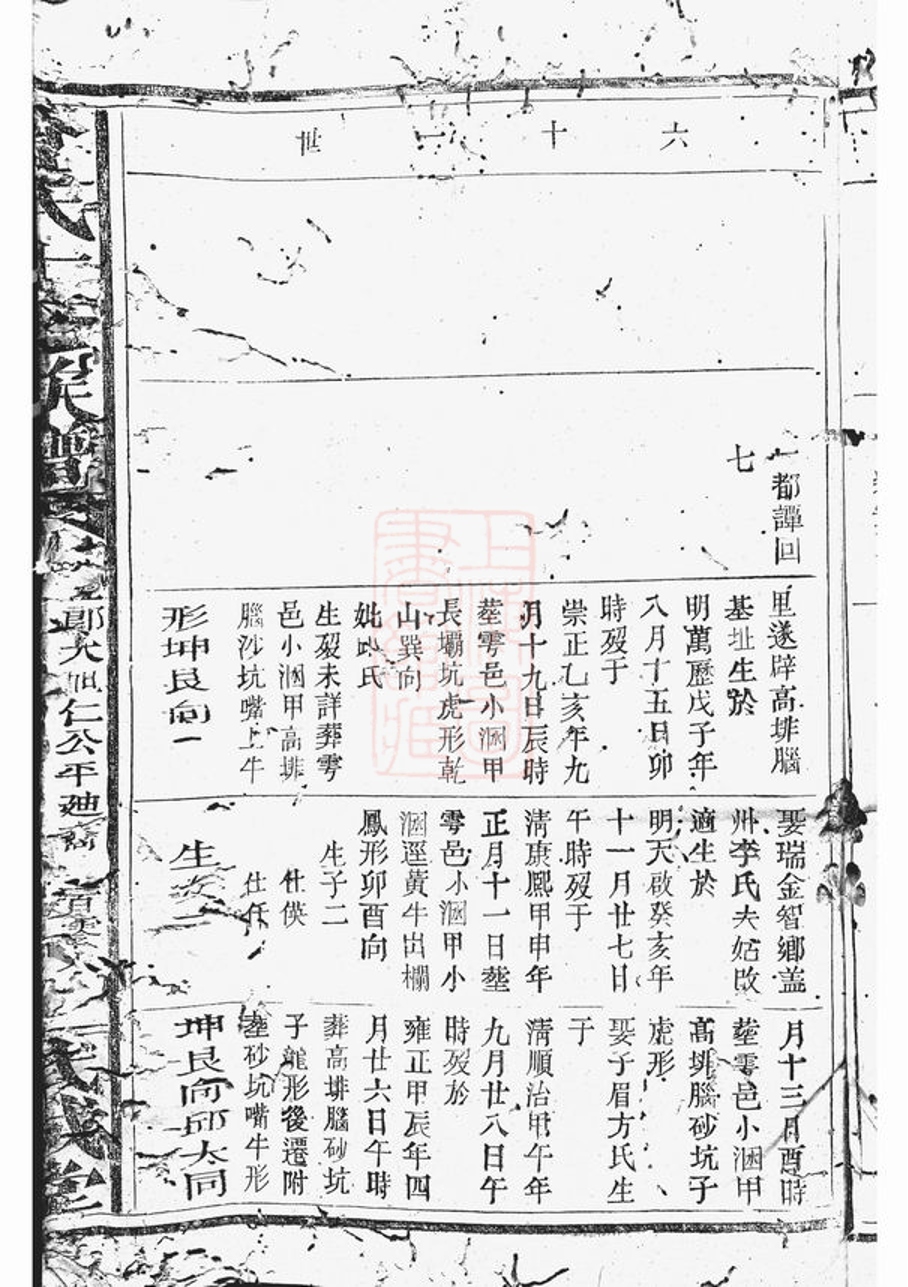 六十一世
一都譚回
七
里遂辟高排腦
基址生於
明萬歷戊子年
八月十五日卯
時歿于
崇正乙亥年九
月十九日辰時
塟雩邑小溷甲
長壩坑虎形乾
山巽向
妣邱氏
生歿未詳葬雩
邑小溷甲高排
腦沙坑嘴上牛
形坤艮向一
娶瑞金智鄉盖
州李氏夫姑改
適生於
明天啟癸亥年
十一月廿七日
午時歿于
清康熈甲申年
正月十一日塟
雩邑小溷甲小
溷逕黄牛出欄
鳳形卯酉向
生子二
仕倓
仕
生女二
月十三日酉時
塟雩邑小溷甲
高排腦砂坑子
虎形
娶子眉方氏生
于
清順治甲午年
九月廿八日午
時歿於
雍正甲辰年四
月廿六日午時
葬高排腦砂坑
子龍形後遷附
塟砂坑嘴牛形
坤艮向邱大同
氏十修族譜
郎大旭仁公平廸